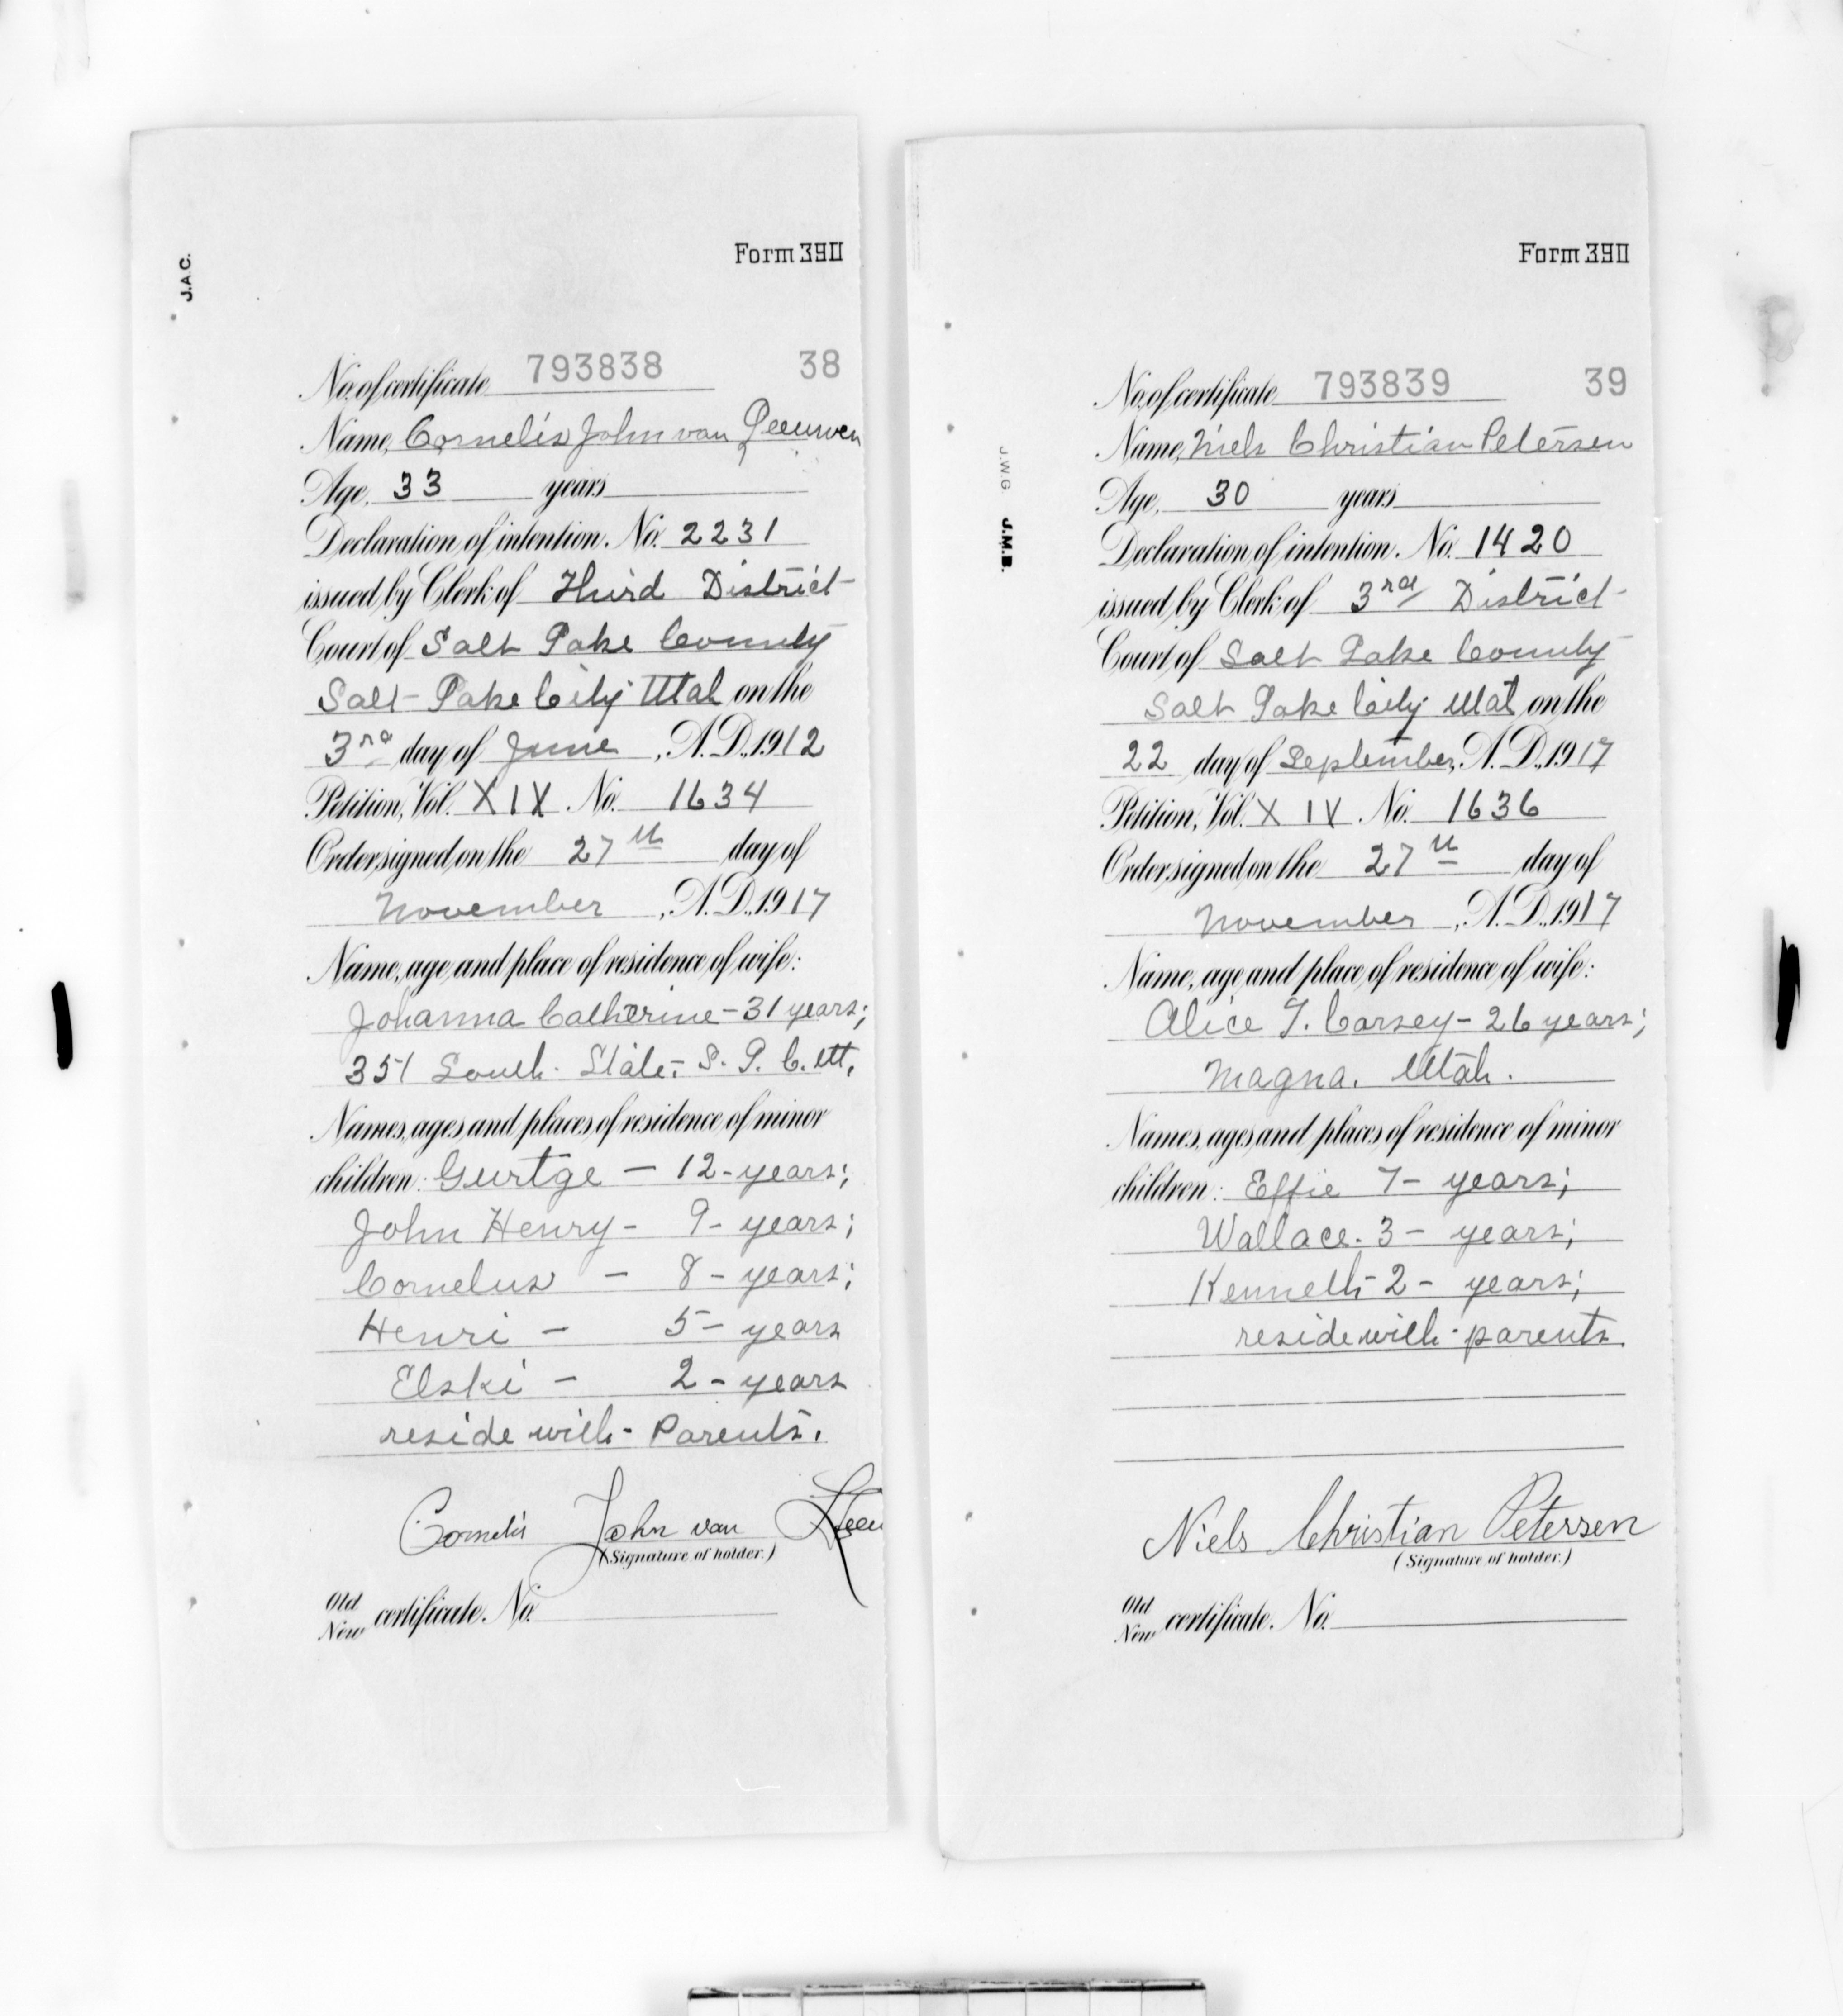 J.A.C.
Form 390
No. of certificate 793838 38
Name, Cornelis John van Leeuwen
Age, 33 years
Declaration of intention. No. 2231
issued by Clerk of Third District
Court of Salt Lake County
Salt Lake City Utah on the
3rd day of June, A.D., 1912
Petition, Vol. XIV. No. 1634
Order signed on the 27th day of
November, A.D., 1917
Name, age, and place of residence of wife:
Johanna Catherine - 31 years;
351 South State - S. L. C. Ut.
Names, ages and places of residence of minor
children: Geurtge - 12 - years;
John Henry - 9 - years;
Cornelus - 8 - years;
Henri - 5 - years
Elski - 2 - years
reside with - Parents.
Cornelis John van Leeu
(Signature of holder.)
Old
New certificate. No.
J.W.G J.M.B.
Form 390
No. of certificate 793839 39
Name, Niels Christian Petersen
Age, 30 years
Declaration of intention. No. 1420
issued by Clerk of 3rd District
Court of Salt Lake County
Salt Lake City Utah on the
22 day of September, A.D., 1917
Petition, Vol. XIV. No. 1636
Order signed on the 27th day of
November, A.D., 1917
Name, age, and place of residence of wife:
Alice T. Carsey - 26 years;
Magna. Utah.
Names, ages and places of residence of minor
children: Effie 7 - years;
Wallace - 3 - years;
Kenneth - 2 - years;
reside with - parents.
Niels Christian Petersen
(Signature of holder.)
Old
New certificate. No.